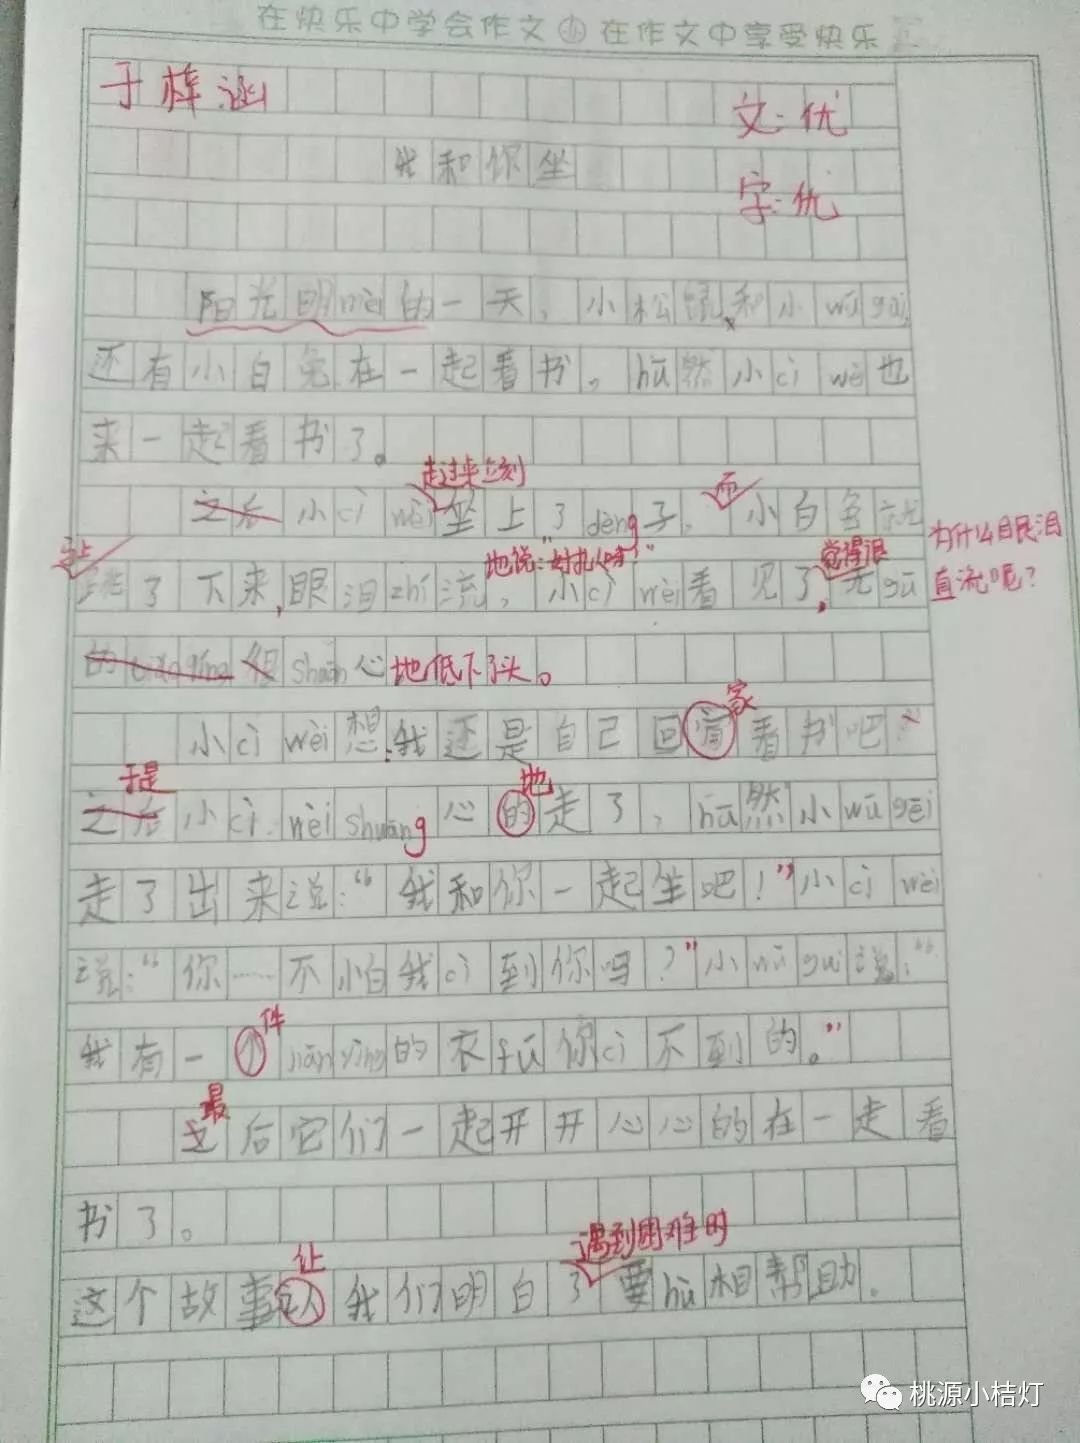 在快乐中学会作文 在作文中享受快乐
于梓涵
文:优
我和你坐
字:优
阳光明mèi的一天,小松鼠和小wū guī,
还有小白兔在一起看书。hū然小cì wèi也
来一起看书了。
走过来立刻
而
之后小cì wèi坐上了dèng子,小白兔就
为什么眼泪直流呢?
马上
地说:"好扎人呀!"
觉得很
跳了下来,眼泪zhí流,小cì wèi看见了,无gū
的 shāng心地低下了头。
家
小cì wèi想:我还是自己回 看书吧。
于是
地
之后小cì wèi shuāng心的走了,hū然小wū guī
走了出来说:“我和你一起坐吧!”小cì wèi
说:“你……不怕我cì到你吗?”小wū guī说:“
件
我有一个jiān yìng的衣fú你cì不到的。”
最
之后它们一起开开心心的在一走看
书了。
让
遇到困难时
这个故事 我们明白了要hù相帮助。
桃源小桔灯